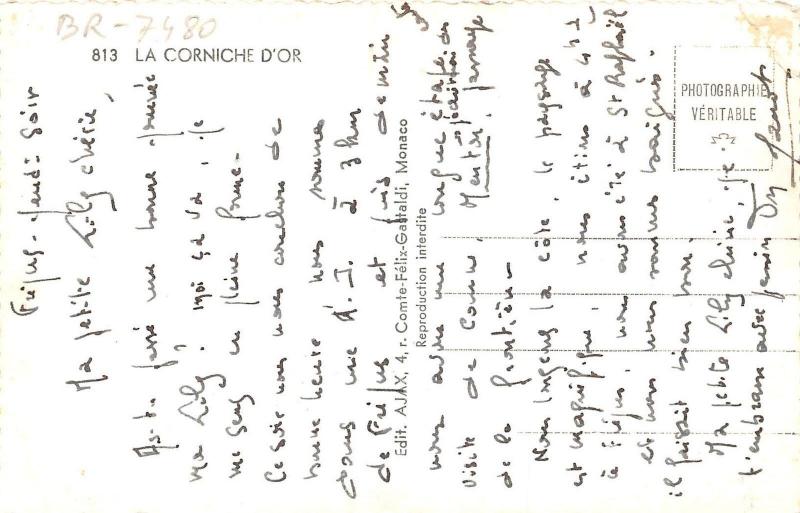 BR-7480
813 LA CORNICHE D'OR
Fréjus - Jeudi Soir
Ma petite Lily chérie,
As-tu passé une bonne journée
ma Lily. moi ça va, je
me sens en pleine forme.
Ce soir nous nous couchons de
bonne heure nous sommes
dans une A.J. à 3 km
de Fréjus et puis demain
nous avons une longue étape
visite de Cannes, Menton, passage
de la frontière.
Nous longeons la côte, le paysage
est magnifique, nous étions à 4h
à Fréjus, nous avons été à St Raphaël
et nous nous sommes baignés.
il faisait bien bon.
Ma petite Lily chérie, je
t'embrasse
Edit. AJAX, 4, r. Comte-Félix-Gastaldi, Monaco
Reproduction interdite
PHOTOGRAPHIE
VÉRITABLE